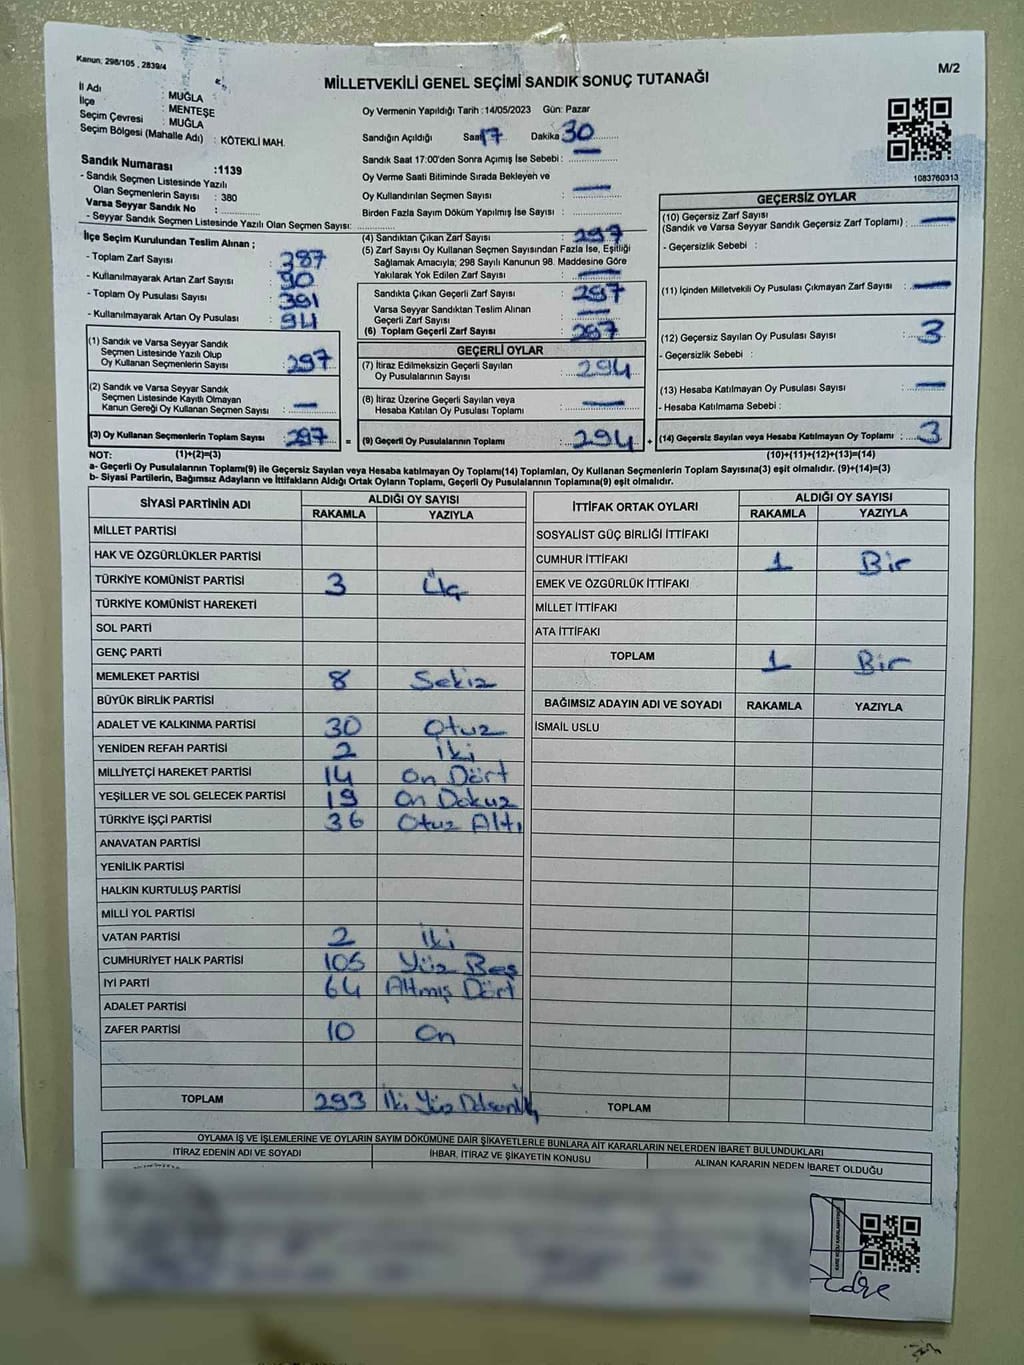 Kanun, 298/105 , 2839/4
M/2
MİLLETVEKİLİ GENEL SEÇİMİ SANDIK SONUÇ TUTANAĞI
İl Adı : MUĞLA
İlçe : MENTEŞE
Seçim Çevresi : MUĞLA
Seçim Bölgesi (Mahalle Adı) : KÖTEKLİ MAH.
Sandık Numarası :1139
- Sandık Seçmen Listesinde Yazılı
Olan Seçmenlerin Sayısı : 380
Varsa Seyyar Sandık No :
- Seyyar Sandık Seçmen Listesinde Yazılı Olan Seçmen Sayısı:
Oy Vermenin Yapıldığı Tarih :14/05/2023 Gün: Pazar
Sandığın Açıldığı Saat 17 Dakika 30
Sandık Saat 17:00'den Sonra Açımış İse Sebebi : —
Oy Verme Saati Bitiminde Sırada Bekleyen ve
Oy Kullandırılan Seçmen Sayısı : —
Birden Fazla Sayım Döküm Yapılmış İse Sayısı :
1083760313
İlçe Seçim Kurulundan Teslim Alınan ;
- Toplam Zarf Sayısı : 387
- Kullanılmayarak Artan Zarf Sayısı : 90
- Toplam Oy Pusulası Sayısı : 391
- Kullanılmayarak Artan Oy Pusulası : 94
(1) Sandık ve Varsa Seyyar Sandık
Seçmen Listesinde Yazılı Olup
Oy Kullanan Seçmenlerin Sayısı : 297
(2) Sandık ve Varsa Seyyar Sandık
Seçmen Listesinde Kayıtlı Olmayan
Kanun Gereği Oy Kullanan Seçmen Sayısı : —
(3) Oy Kullanan Seçmenlerin Toplam Sayısı : 297 =
(4) Sandıktan Çıkan Zarf Sayısı : 297
(5) Zarf Sayısı Oy Kullanan Seçmen Sayısından Fazla İse, Eşitliği
Sağlamak Amacıyla; 298 Sayılı Kanunun 98. Maddesine Göre
Yakılarak Yok Edilen Zarf Sayısı : —
Sandıkta Çıkan Geçerli Zarf Sayısı : 297
Varsa Seyyar Sandıktan Teslim Alınan
Geçerli Zarf Sayısı : —
(6) Toplam Geçerli Zarf Sayısı : 297
GEÇERLİ OYLAR
(7) İtiraz Edilmeksizin Geçerli Sayılan
Oy Pusulalarının Sayısı : 294
(8) İtiraz Üzerine Geçerli Sayılan veya
Hesaba Katılan Oy Pusulası Toplamı : —
(9) Geçerli Oy Pusulalarının Toplamı : 294 +
GEÇERSİZ OYLAR
(10) Geçersiz Zarf Sayısı
(Sandık ve Varsa Seyyar Sandık Geçersiz Zarf Toplamı) : —
- Geçersizlik Sebebi :
(11) İçinden Milletvekili Oy Pusulası Çıkmayan Zarf Sayısı : —
(12) Geçersiz Sayılan Oy Pusulası Sayısı : 3
- Geçersizlik Sebebi :
(13) Hesaba Katılmayan Oy Pusulası Sayısı : —
- Hesaba Katılmama Sebebi :
(14) Geçersiz Sayılan veya Hesaba Katılmayan Oy Toplamı : 3
NOT: (1)+(2)=(3) (10)+(11)+(12)+(13)=(14)
a- Geçerli Oy Pusulalarının Toplamı(9) ile Geçersiz Sayılan veya Hesaba katılmayan Oy Toplamı(14) Toplamları, Oy Kullanan Seçmenlerin Toplam Sayısına(3) eşit olmalıdır. (9)+(14)=(3)
b- Siyasi Partilerin, Bağımsız Adayların ve İttifakların Aldığı Ortak Oyların Toplamı, Geçerli Oy Pusulalarının Toplamına(9) eşit olmalıdır.
SİYASİ PARTİNİN ADI ALDIĞI OY SAYISI
RAKAMLA YAZIYLA
MİLLET PARTİSİ
HAK VE ÖZGÜRLÜKLER PARTİSİ
TÜRKİYE KOMÜNİST PARTİSİ 3 Üç
TÜRKİYE KOMÜNİST HAREKETİ
SOL PARTİ
GENÇ PARTİ
MEMLEKET PARTİSİ 8 Sekiz
BÜYÜK BİRLİK PARTİSİ
ADALET VE KALKINMA PARTİSİ 30 Otuz
YENİDEN REFAH PARTİSİ 2 İki
MİLLİYETÇİ HAREKET PARTİSİ 14 On Dört
YEŞİLLER VE SOL GELECEK PARTİSİ 19 On Dokuz
TÜRKİYE İŞÇİ PARTİSİ 36 Otuz Altı
ANAVATAN PARTİSİ
YENİLİK PARTİSİ
HALKIN KURTULUŞ PARTİSİ
MİLLİ YOL PARTİSİ
VATAN PARTİSİ 2 İki
CUMHURİYET HALK PARTİSİ 105 Yüz Beş
İYİ PARTİ 64 Altmış Dört
ADALET PARTİSİ
ZAFER PARTİSİ 10 On
TOPLAM 293 İki Yüz
İTTİFAK ORTAK OYLARI ALDIĞI OY SAYISI
RAKAMLA YAZIYLA
SOSYALİST GÜÇ BİRLİĞİ İTTİFAKI
CUMHUR İTTİFAKI 1 Bir
EMEK VE ÖZGÜRLÜK İTTİFAKI
MİLLET İTTİFAKI
ATA İTTİFAKI
TOPLAM 1 Bir
BAĞIMSIZ ADAYIN ADI VE SOYADI RAKAMLA YAZIYLA
İSMAİL USLU
TOPLAM
OYLAMA İŞ VE İŞLEMLERİNE VE OYLARIN SAYIM DÖKÜMÜNE DAİR ŞİKAYETLERLE BUNLARA AİT KARARLARIN NELERDEN İBARET BULUNDUKLARI
İTİRAZ EDENİN ADI VE SOYADI İHBAR, İTİRAZ VE ŞİKAYETİN KONUSU ALINAN KARARIN NEDEN İBARET OLDUĞU